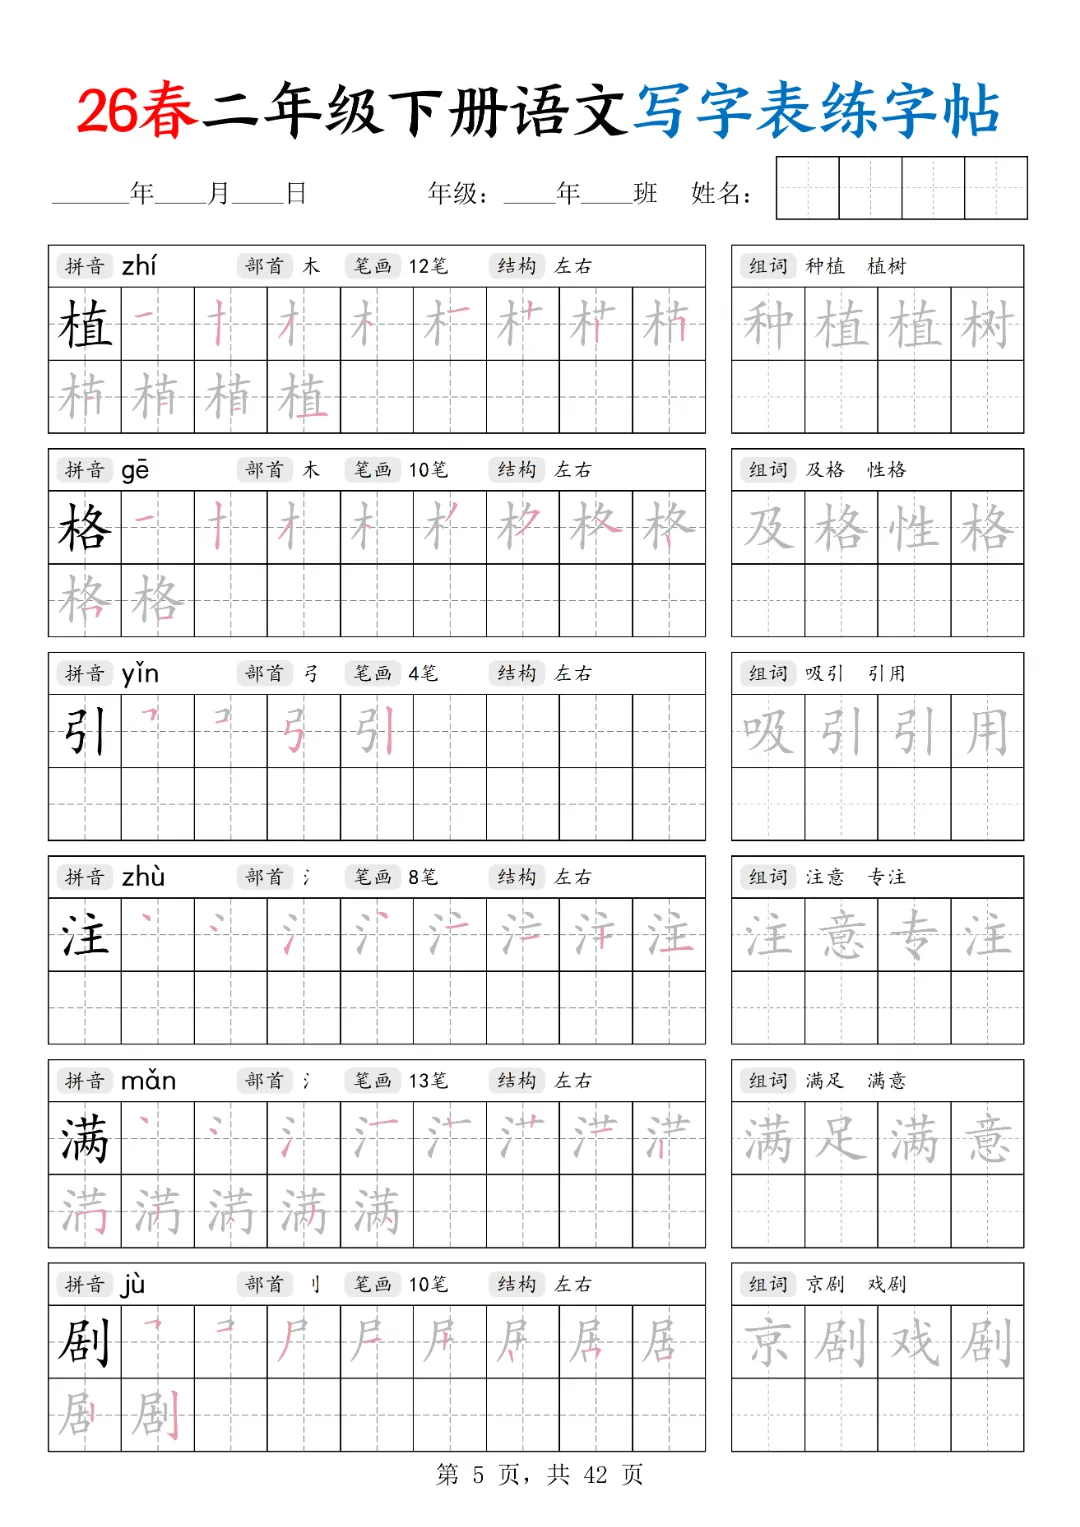 26春二年级下册语文写字表练字帖
______年____月____日 年级：____年____班 姓名：
拼音 zhí 部首 木 笔画 12笔 结构 左右 组词 种植 植树
植 种植植树
植
拼音 gē 部首 木 笔画 10笔 结构 左右 组词 及格 性格
格 及格性格
格
拼音 yǐn 部首 弓 笔画 4笔 结构 左右 组词 吸引 引用
引 引 吸引引用
拼音 zhù 部首 氵 笔画 8笔 结构 左右 组词 注意 专注
注 注 注意专注
拼音 mǎn 部首 氵 笔画 13笔 结构 左右 组词 满足 满意
满 满足满意
满
拼音 jù 部首 刂 笔画 10笔 结构 左右 组词 京剧 戏剧
剧 居 京剧戏剧
剧
第 5 页，共 42 页